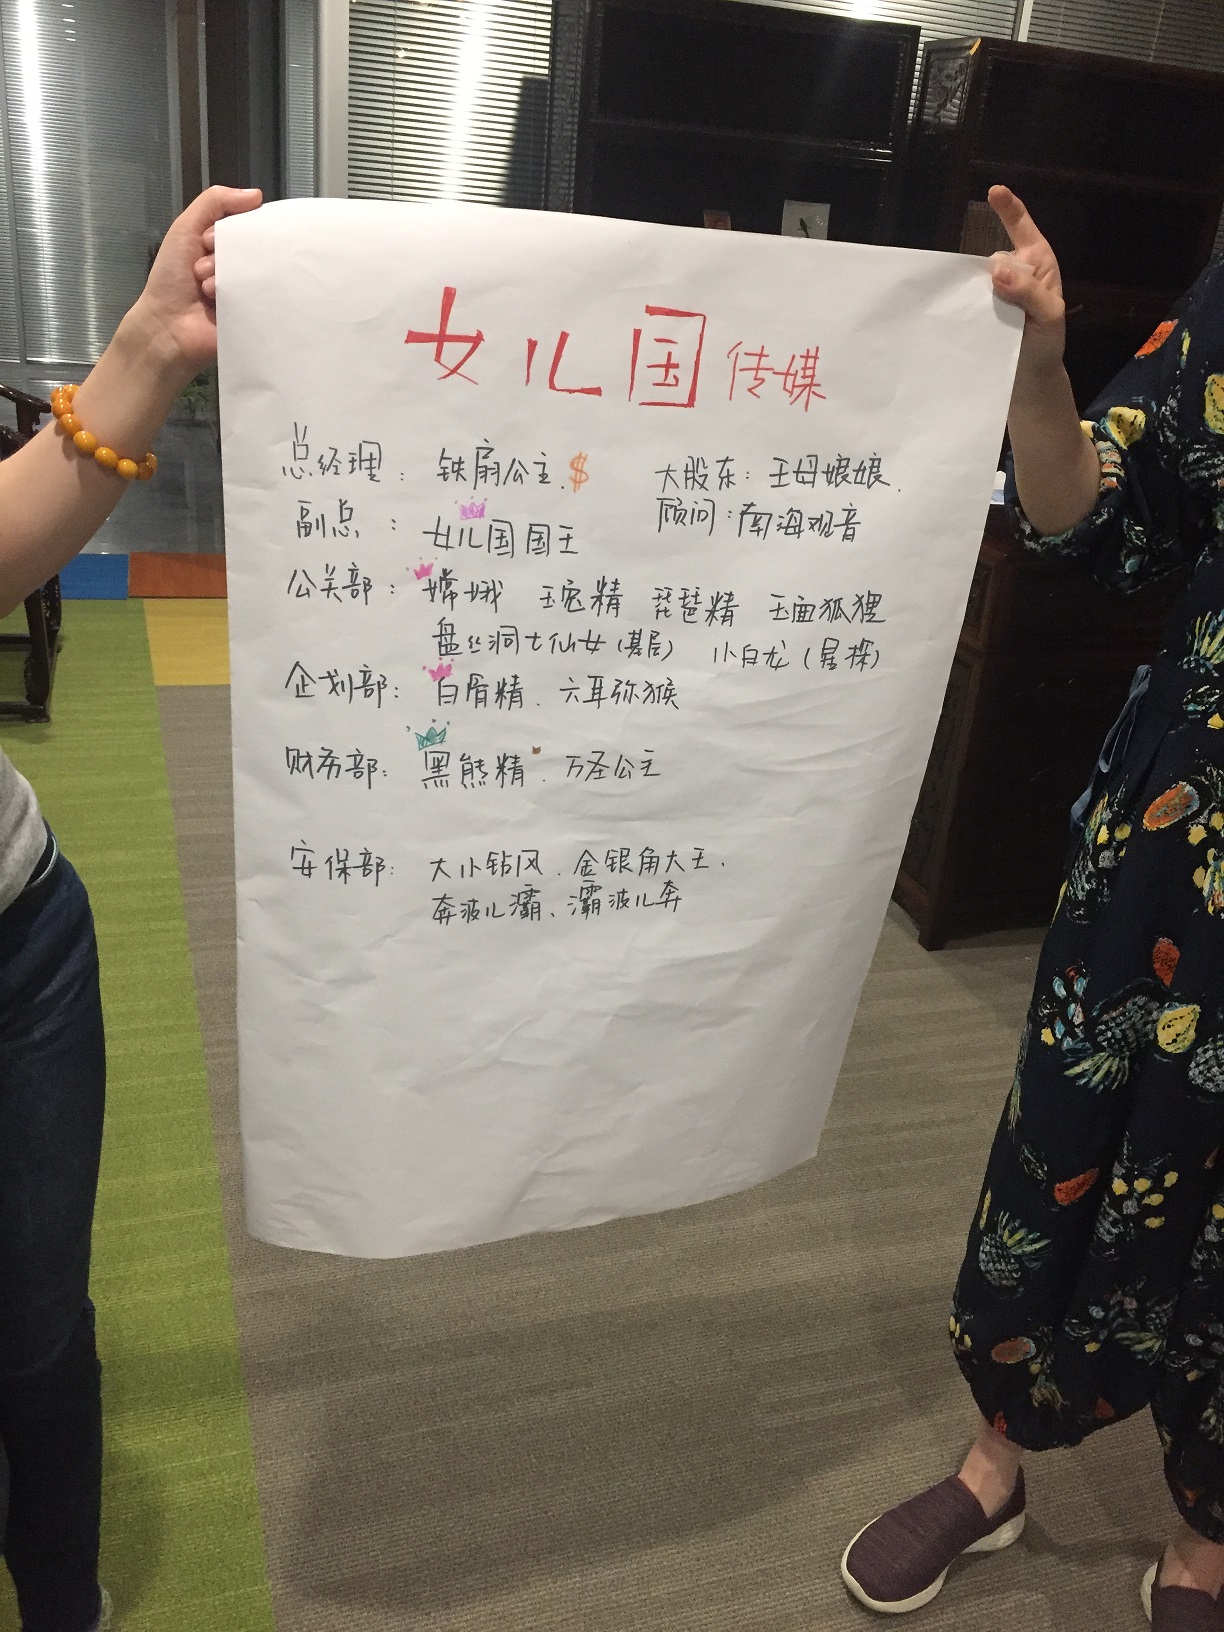 女儿国传媒
总经理：铁扇公主.$ 大股东：王母娘娘.
副总：女儿国国王 顾问：南海观音
公关部：嫦娥 玉兔精 琵琶精 玉面狐狸
盘丝洞七仙女(基层) 小白龙(星探)
企划部：白骨精.六耳弥猴
财务部：黑熊精.万圣公主
安保部：大小钻风.金银角大王.
奔波儿灞、灞波儿奔